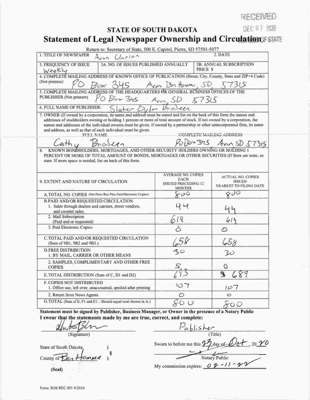 RECEIVED
DEC 07 2020
STATE OF SOUTH DAKOTA
Statement of Legal Newspaper Ownership and Circulation
Return to: Secretary of State, 500 E. Capitol, Pierre, SD 57501-5077
1. TITLE OF NEWSPAPER
Avon Clarion
2. DATE
3. FREQUENCY OF ISSUE
Weekly
3A. NO. OF ISSUES PUBLISHED ANNUALLY
3B. ANNUAL SUBSCRIPTION
PRICE $
4. COMPLETE MAILING ADDRESS OF KNOWN OFFICE OF PUBLICATION (Street, City, County, State and ZIP+4 Code)
(Not printers)
PO Box 345 Avon Bon Homme SD 57315
5. COMPLETE MAILING ADDRESS OF THE HEADQUARTERS OR GENERAL BUSINESS OFFICES OF THE
PUBLISHER (Not printer)
PO Box 345 Avon, SD 57315
6. FULL NAME OF PUBLISHER:
7. OWNER (If owned by a corporation, its name and address must be stated and list on the back of this form the names and
addresses of stockholders owning or holding 1 percent or more of total amount of stock. If not owned by a corporation, the
names and addresses of the individual owners must be given. If owned by a partnership or other unincorporated firm, its name
and address, as well as that of each individual must be given.
FULL NAME
COMPLETE MAILING ADDRESS
Cathy Brodeen PO Box 345 Avon SD 57315
8. KNOWN BONDHOLDERS, MORTGAGES, AND OTHER SECURITY HOLDERS OWNING OR HOLDING 1
PERCENT OR MORE OF TOTAL AMOUNT OF BONDS, MORTGAGES OR OTHER SECURITIES (If there are none, so
state. If more space is needed, list on back of this form.
9. EXTENT AND NATURE OF CIRCULATION
AVERAGE NO. COPIES
EACH
ISSUED PRECEDING 12
MONTHS
ACTUAL NO. COPIES
ISSUED
NEAREST TO FILING DATE
A. TOTAL NO. COPIES
800 800
B. PAID AND/OR REQUESTED CIRCULATION
1. Sales through dealers and carriers, street vendors,
and counter sales.
44 44
2. Mail Subscription
(Paid and/or requested)
614 614
3. Paid Electronic Copies
0 0
C. TOTAL PAID AND/OR REQUESTED CIRCULATION
(Sum of 9B1, 9B2 and 9B3.)
658 658
D. FREE DISTRIBUTION
1. BY MAIL, CARRIER OR OTHER MEANS
30 30
2. SAMPLES, COMPLIMENTARY AND OTHER FREE
COPIES
E. TOTAL DISTRIBUTION (Sum of C, D1 and D2)
F. COPIES NOT DISTRIBUTED
1. Office use, left over, unaccounted, spoiled after printing
107 107
2. Return from News Agents
0 0
G. TOTAL (Sum of E, F1 and F2 – Should equal total shown in A.)
800 800
Statement must be signed by Publisher, Business Manager, or Owner in the presence of a Notary Public
I swear that the statements made by me are true, correct, and complete:
Publisher
(Signature)
(Title)
State of South Dakota
County of Bon Homme
Sworn to before me this
Oct 20 20
(Seal)
Notary Public
My commission expires: